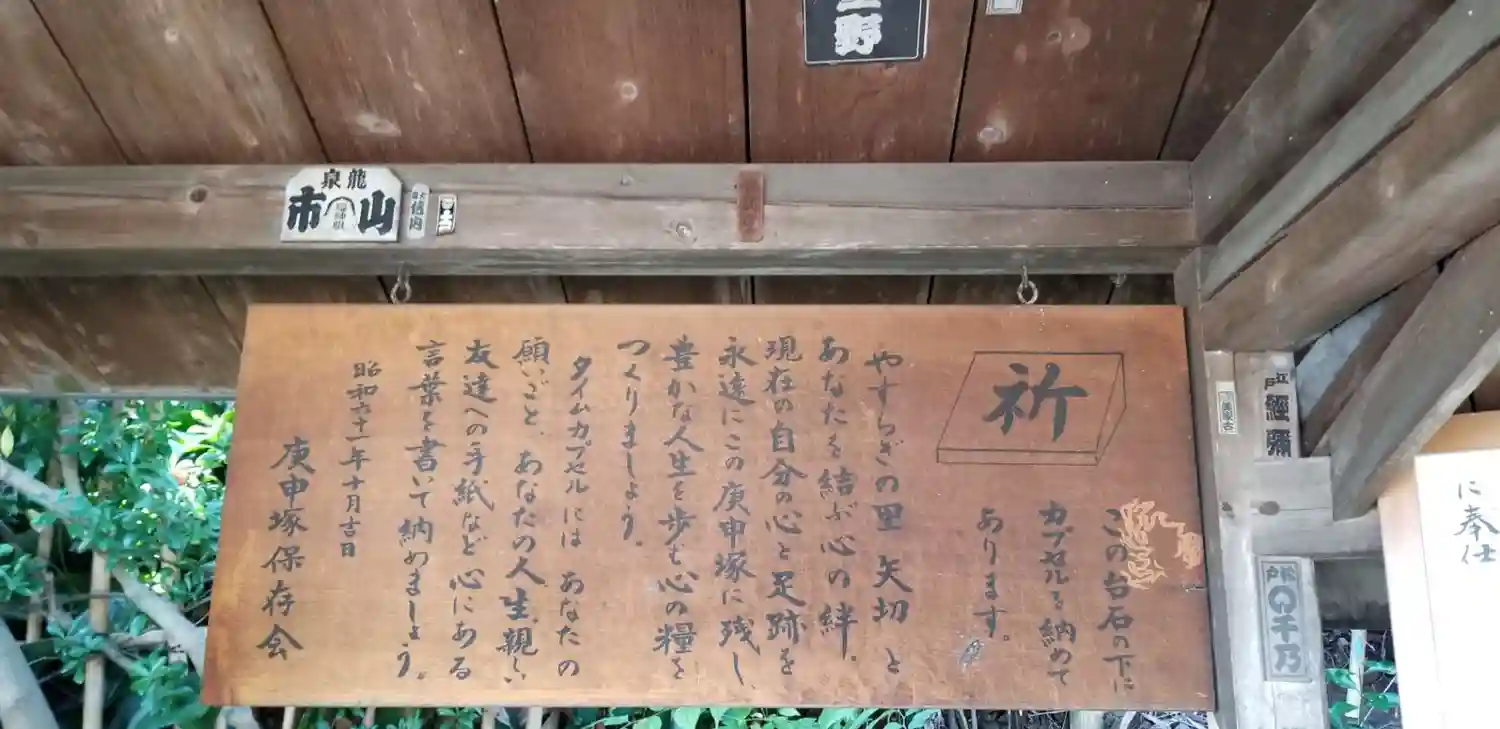 祈
この台石の下に
カプセルを納めて
あります。
やすらぎの里 矢切 と
あなたを結ぶ心の絆。
現在の自分の心と足跡を
永遠にこの庚申塚に残し、
豊かな人生を歩む心の糧を
つくりましょう。
タイムカプセルには あなたの
願いごと、あなたの人生、親しい
友達への手紙など心にある
言葉を書いて納めましょう。
昭和六十一年十月吉日
庚申塚保存会
野
龍泉
山市
江戸
經彌
松戸
千乃
に奉仕